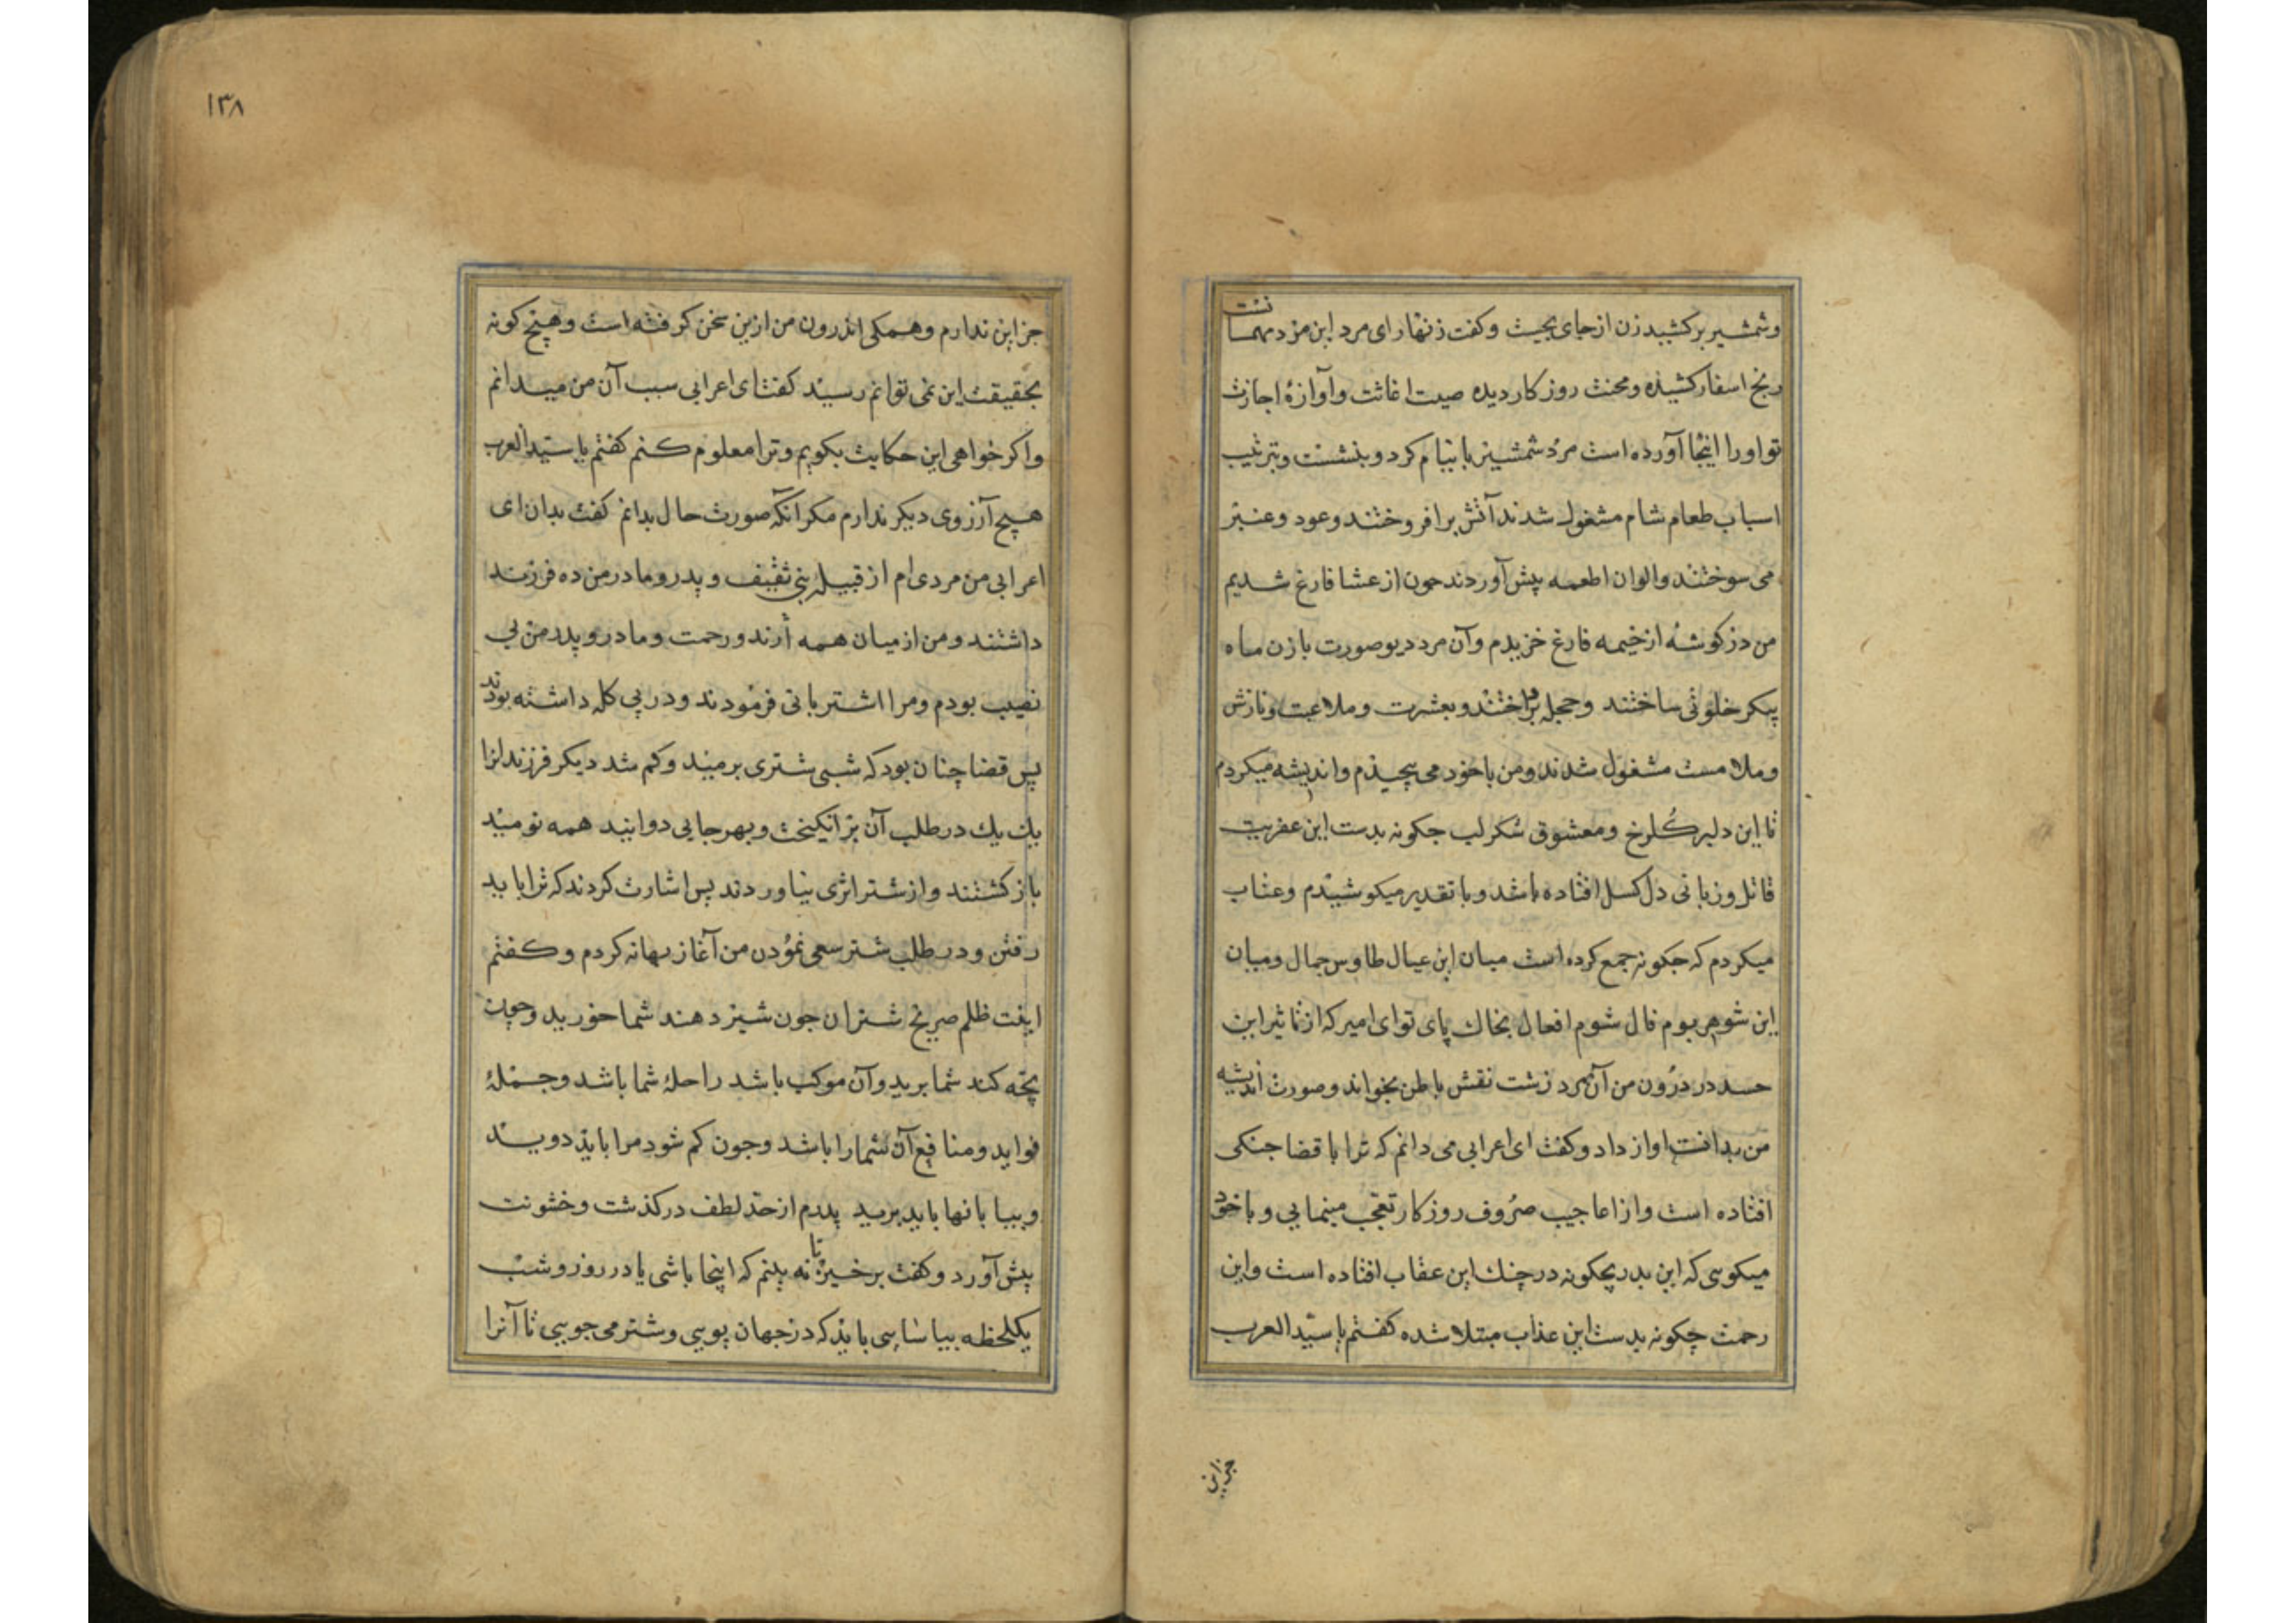 وشمشیر برکشید زن از جای بجست وکفت زنهار ای مرد این مرد مهمانست
رنج اسفار کشیده ومحنت روزکار دیده صیت اغاثت وآوازهٔ اجازت
تو اورا اینجا آورده است مرد شمشیر با نیام کرد وبنشست وبترتیب
اسباب طعام شام مشغول شدند آتش برافروختند وعود وعنبر
می سوختند والوان اطعمه پیش آوردند جون از عشا فارغ شدیم
من در کوشهٔ از خیمه فارغ خزیدم وآن مرد دیو صورت با زن ماه
پیکر خلوتی ساختند وحجله پرداختند وبعشرت وملاعبت ونازش
وملامست مشغول شدند ومن با خود می پیچیدم واندیشه میکردم
تا این دلبر کلرخ ومعشوق شکر لب جکونه بدست این عفریت
قاتل وزبانی دل کسل افتاده باشد وبا تقدیر میکوشیدم وعتاب
میکردم که جکونه جمع کرده است میان این عیال طاوس جمال ومیان
این شوهر بوم فال شوم افعال بخاك پای تو ای امیر که از تاثیر این
حسد در درون من آن مرد زشت نقش باطن بخواند وصورت اندیشه
من بدانست اواز داد وکفت ای اعرابی می دانم که ترا با قضا جنکی
افتاده است واز اعاجیب صروف روزکار تعجب مینمایی وبا خود
میکویی که این بدر بچکونه در چنك این عقاب افتاده است واین
رحمت چکونه بدست این عذاب مبتلا شده کفتم یا سید العرب
جز این
١٣٨
جز این ندارم وهمکی اندرون من ازین سخن کرفته است وهیچ کونه
بحقیقت این نمی توانم رسید کفت ای اعرابی سبب آن من میدانم
واکر خواهی این حکایت بکویم وترا معلوم کنم کفتم یا سید العرب
هیچ آرزوی دیکر ندارم مکر آنکه صورت حال بدانم کفت بدان ای
اعرابی من مردی ام از قبیله بنی ثقیف وپدر ومادر من ده فرزند
داشتند ومن از میان همه أرند ورحمت ومادر وپدر من بی
نصیب بودم ومرا اشتربانی فرمودند ودر پی کله داشته بودند
پس قضا چنان بود که شبی شتری برمید وکم شد دیکر فرزندانرا
یك یك در طلب آن برانکیخت وبهر جایی دوانید همه نومید
باز کشتند واز شتر اثری نیاوردند پس اشارت کردند که ترا باید
رفتن ودر طلب شتر سعی نمودن من آغاز بهانه کردم وکفتم
اینت ظلم صریح شتران جون شیر دهند شما خورید وجون
بچه کند شما برید وآن موکب باشد راحلهٔ شما باشد وجملهٔ
فواید ومنافع آن شمارا باشد وجون کم شود مرا باید دوید
وبیابانها باید برید پدرم از حد لطف درکذشت وخشونت
پیش آورد وکفت برخیز تا نه بینم که اینجا باشی یا در روز وشب
یکلحظه بیاسایی باید که در جهان پویی وشتر می جویی تا آنرا